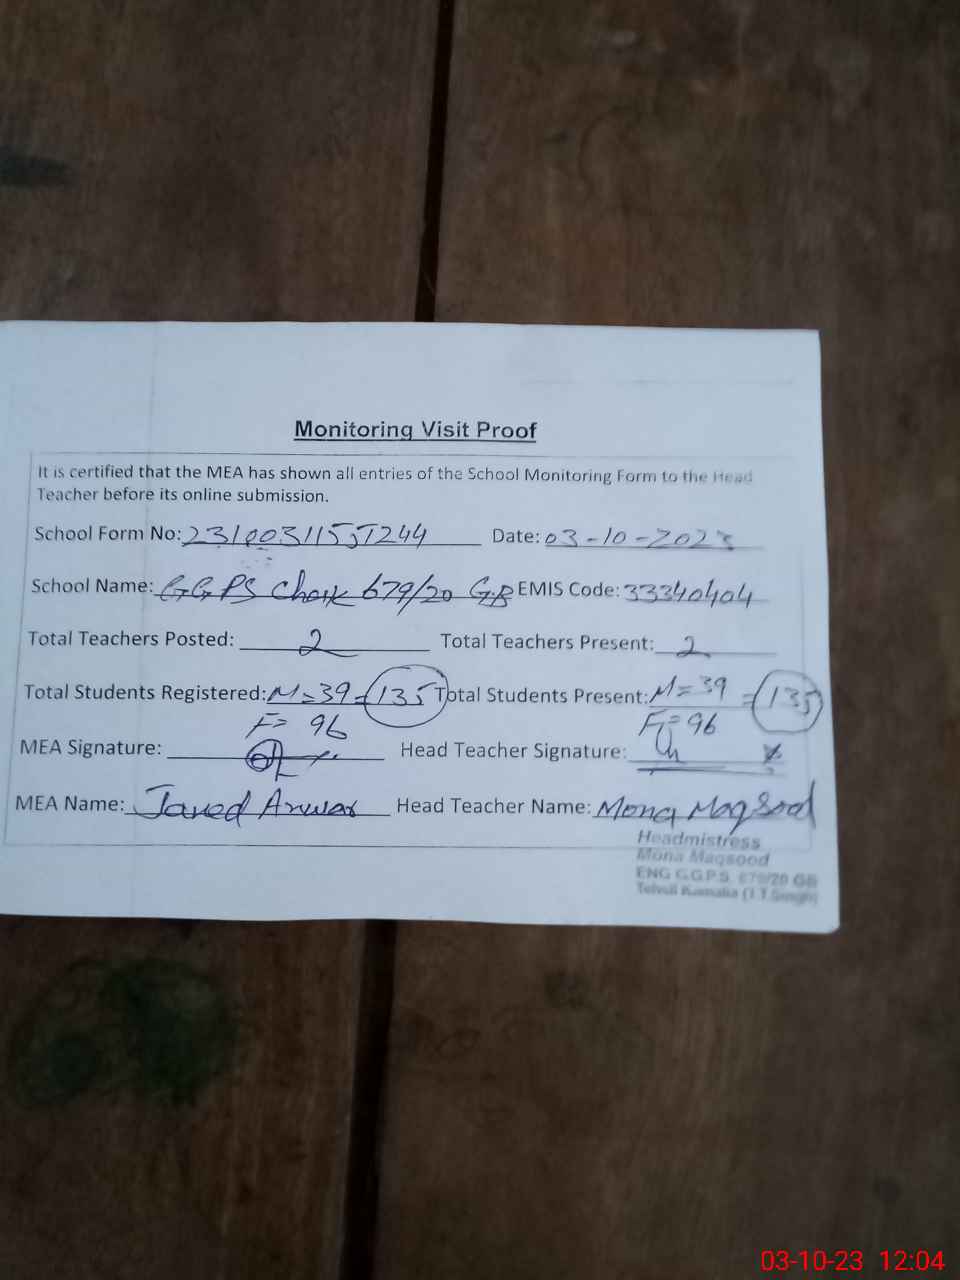 Monitoring Visit Proof
It is certified that the MEA has shown all entries of the School Monitoring Form to the Head
Teacher before its online submission.
School Form No: 23100311551244 Date: 03-10-2023
School Name: GGPS Chak 679/20 GB EMIS Code: 33340404
Total Teachers Posted: 2 Total Teachers Present: 2
Total Students Registered: M=39 = 135 Total Students Present: M=39 = 135
F= 96 F= 96
MEA Signature: Head Teacher Signature:
MEA Name: Javed Anwar Head Teacher Name: Mona Maqsood
Headmistress
Mona Maqsood
ENG G.G.P.S. 679/20 GB
Tehsil Kamalia (T.T.Singh)
03-10-23 12:04